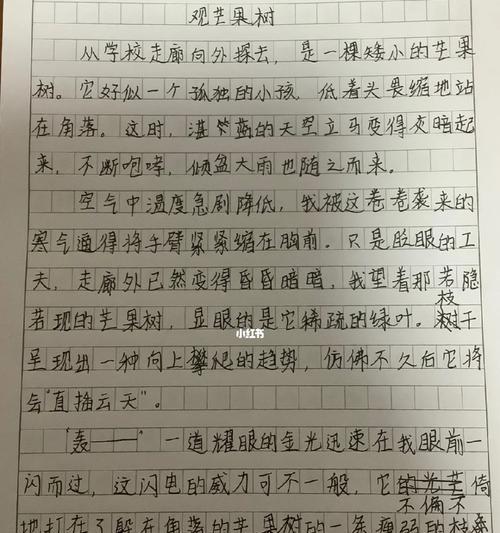 观芒果树
从学校走廊向外探去，是一棵矮小的芒果
树。它好似一个孤独的小孩，低着头畏缩地站
在角落。这时，湛蓝的天空立马变得变暗起
来，不断咆哮，倾盆大雨也随之而来。
空气中温度急剧降低，我被这卷卷袭来的
寒气逼得将手臂紧紧缩在胸前。只是眨眼的工
夫，走廊外已然变得昏昏暗暗，我望着那若隐
若现的芒果树，显眼的是它稀疏的绿叶。树枝干
呈现出一种向上攀爬的趋势，仿佛不久后它将
会“直插云天”。
小红书
“轰——”一道耀眼的金光迅速在我眼前一
闪而过，这闪电的威力可不一般，它不偏不倚
地打在了躲在角落的芒果树的一条瘦弱的枝